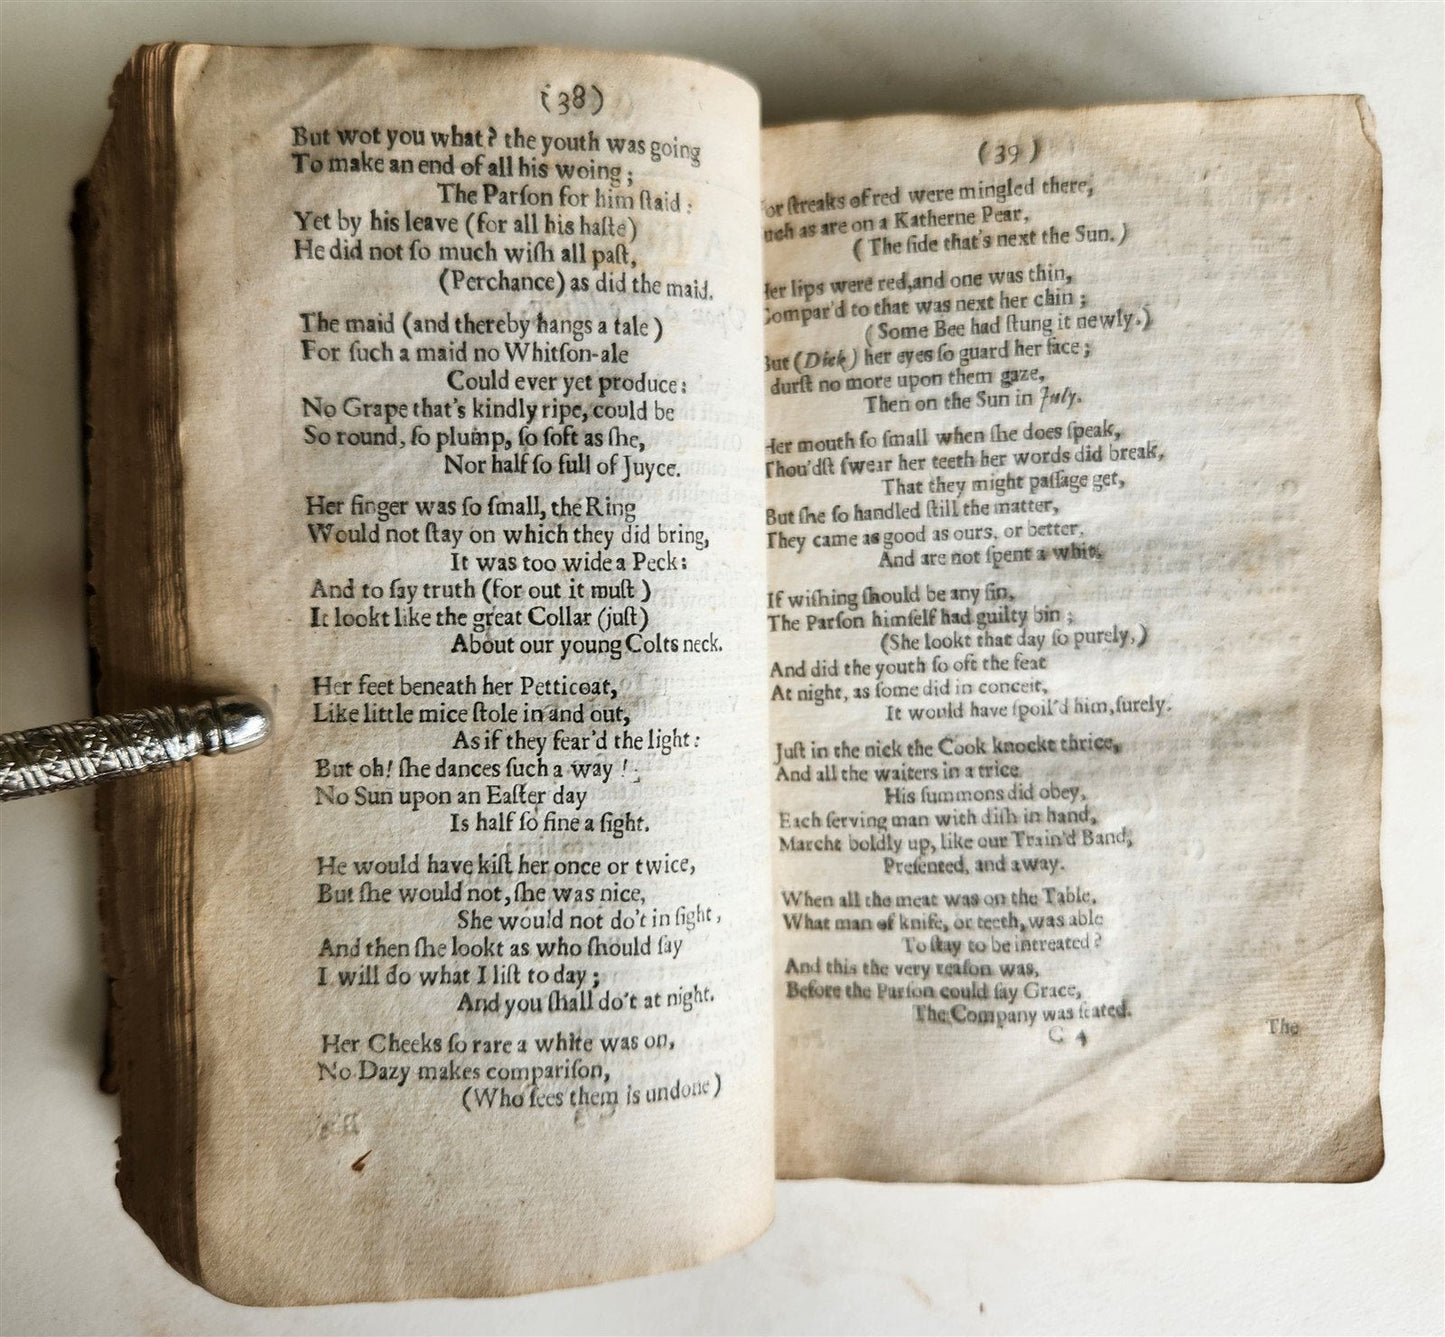 (38)
But wot you what? the youth was going
To make an end of all his woing;
The Parſon for him ſtaid:
Yet by his leave (for all his haſte)
He did not ſo much wiſh all paſt,
(Perchance) as did the maid.
The maid (and thereby hangs a tale)
For ſuch a maid no Whitſon-ale
Could ever yet produce:
No Grape that's kindly ripe, could be
So round, ſo plump, ſo ſoft as ſhe,
Nor half ſo full of Juyce.
Her finger was ſo ſmall, the Ring
Would not ſtay on which they did bring,
It was too wide a Peck:
And to ſay truth (for out it muſt)
It lookt like the great Collar (juſt)
About our young Colts neck.
Her feet beneath her Petticoat,
Like little mice ſtole in and out,
As if they fear'd the light:
But oh! ſhe dances ſuch a way!
No Sun upon an Eaſter day
Is half ſo fine a ſight.
He would have kiſt her once or twice,
But ſhe would not, ſhe was nice,
She would not do't in ſight,
And then ſhe lookt as who ſhould ſay
I will do what I liſt to day;
And you ſhall do't at night.
Her Cheeks ſo rare a white was on,
No Dazy makes compariſon,
(Who ſees them is undone)
(39)
or ſtreaks of red were mingled there,
uch as are on a Katherne Pear,
(The ſide that's next the Sun.)
Her lips were red, and one was thin,
Compar'd to that was next her chin;
(Some Bee had ſtung it newly.)
But (Dick) her eyes ſo guard her face;
durſt no more upon them gaze,
Then on the Sun in July.
Her mouth ſo ſmall when ſhe does ſpeak,
Thou'dſt ſwear her teeth her words did break,
That they might paſſage get,
But ſhe ſo handled ſtill the matter,
They came as good as ours, or better,
And are not ſpent a whit.
If wiſhing ſhould be any ſin,
The Parſon himſelf had guilty bin;
(She lookt that day ſo purely,)
And did the youth ſo oft the feat
At night, as ſome did in conceit,
It would have ſpoil'd him, ſurely.
Juſt in the nick the Cook knockt thrice,
And all the waiters in a trice
His ſummons did obey,
Each ſerving man with diſh in hand,
Marcht boldly up, like our Train'd Band,
Preſented, and away.
When all the meat was on the Table,
What man of knife, or teeth, was able
To ſtay to be intreated?
And this the very reaſon was,
Before the Parſon could ſay Grace,
The Company was ſeated.
C 4 The